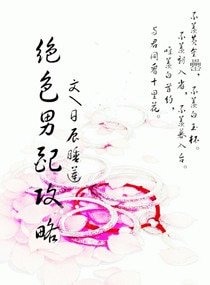 不羡黄金罍，不羡白玉杯。
不羡朝入省，不羡暮入台。
唯羡白首约，
与君同看十里花。
文\日辰睡莲
绝色男配攻略